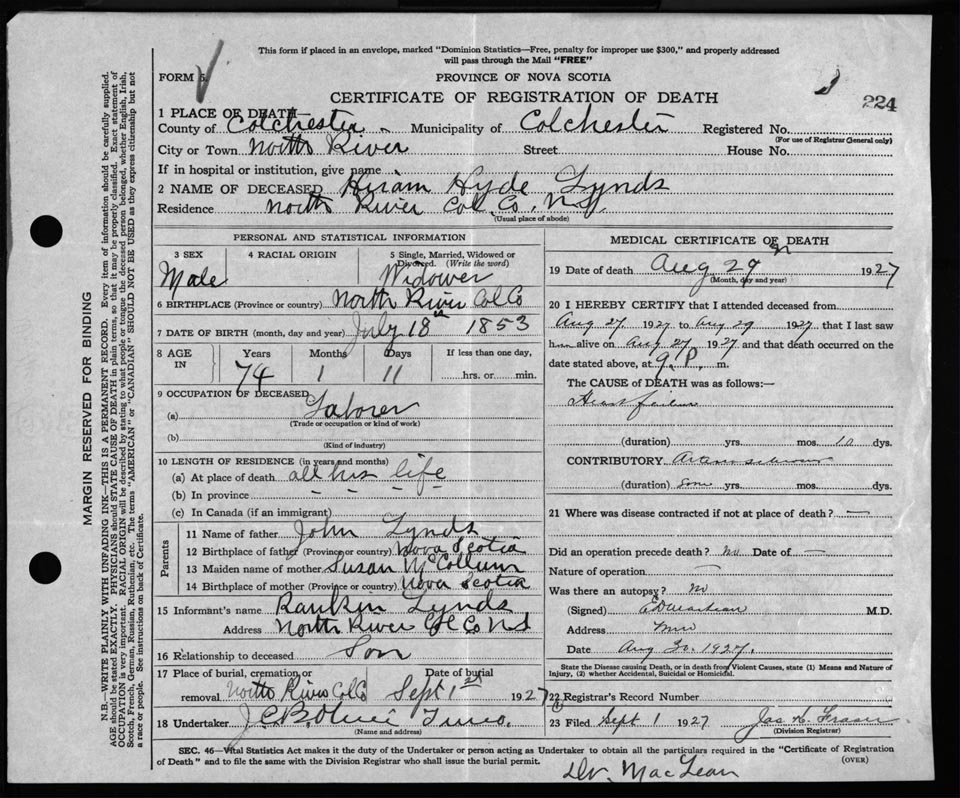 This form if placed in an envelope, marked "Dominion Statistics—Free, penalty for improper use $300," and properly addressed
will pass through the Mail "FREE"
FORM 5. PROVINCE OF NOVA SCOTIA
224
CERTIFICATE OF REGISTRATION OF DEATH
1 PLACE OF DEATH
County of Colchester Municipality of Colchester Registered No.
(For use of Registrar General only)
City or Town North River Street House No.
If in hospital or institution, give name
2 NAME OF DECEASED Hiram Hyde Lynds
Residence North River Col. Co. N.S.
(Usual place of abode)
PERSONAL AND STATISTICAL INFORMATION
3 SEX 4 RACIAL ORIGIN 5 Single, Married, Widowed or
Divorced. (Write the word)
Male Widower
6 BIRTHPLACE (Province or country) North River Col Co
7 DATE OF BIRTH (month, day and year) July 18th 1853
8 AGE IN Years Months Days If less than one day,
74 1 11 hrs. or min.
9 OCCUPATION OF DECEASED
(a) Laborer
(Trade or occupation or kind of work)
(b)
(Kind of industry)
10 LENGTH OF RESIDENCE (in years and months)
(a) At place of death all his life
(b) In province
(c) In Canada (if an immigrant)
Parents
11 Name of father John Lynds
12 Birthplace of father (Province or country) Nova Scotia
13 Maiden name of mother Susan McCollum
14 Birthplace of mother (Province or country) Nova Scotia
15 Informant's name Rankin Lynds
Address North River Col Co NS
16 Relationship to deceased Son
17 Place of burial, cremation or Date of burial
removal North River Col Co Sept 1st 1927
18 Undertaker
(Name and address)
MEDICAL CERTIFICATE OF DEATH
19 Date of death Aug 29 1927
(Month, day and year)
20 I HEREBY CERTIFY that I attended deceased from
Aug 27 1927 to Aug 29 1927 that I last saw
him alive on Aug 27 1927 and that death occurred on the
date stated above, at 9. P. m.
The CAUSE of DEATH was as follows:—
Heart failure
(duration) yrs. mos. 10 dys.
CONTRIBUTORY
(duration) Some yrs. mos. dys.
21 Where was disease contracted if not at place of death? —
Did an operation precede death? No Date of —
Nature of operation —
Was there an autopsy? No
(Signed) M.D.
Address
Date Aug 30. 1927.
State the Disease causing Death, or in death from Violent Causes, state (1) Means and Nature of
Injury, (2) whether Accidental, Suicidal or Homicidal.
22 Registrar's Record Number
23 Filed Sept 1 1927 Jas H. Fraser
(Division Registrar)
SEC. 46—Vital Statistics Act makes it the duty of the Undertaker or person acting as Undertaker to obtain all the particulars required in the "Certificate of Registration
of Death" and to file the same with the Division Registrar who shall issue the burial permit.
(OVER)
Dr. MacLean
MARGIN RESERVED FOR BINDING
N.B.—WRITE PLAINLY WITH UNFADING INK—THIS IS A PERMANENT RECORD. Every item of information should be carefully supplied.
AGE should be stated EXACTLY. PHYSICIANS should STATE CAUSE OF DEATH in plain terms, so that it may be properly classified. Exact statement of
OCCUPATION is very important. RACIAL ORIGIN will be described by stating to what people or tongue the deceased person belonged, whether English, Irish,
Scotch, French, German, Russian, Ruthenian, etc. The terms "AMERICAN" or "CANADIAN" SHOULD NOT BE USED as they express citizenship but not
a race or people. See instructions on back of Certificate.